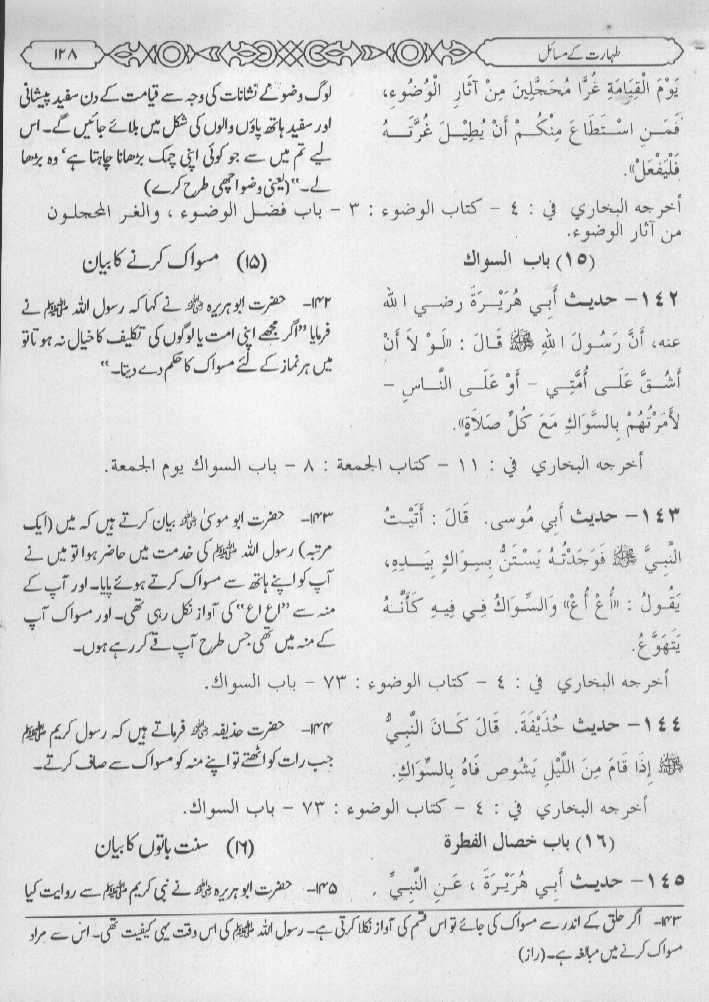 طہارت کے مسائل
۱۲۸
يَوْمَ الْقِيَامَةِ غُرًّا مُحَجَّلِينَ مِنْ آثَارِ الْوُضُوءِ،
فَمَنِ اسْتَطَاعَ مِنْكُمْ أَنْ يُطِيلَ غُرَّتَهُ
فَلْيَفْعَلْ».
لوگ وضو کے نشانات کی وجہ سے قیامت کے دن سفید پیشانی
اور سفید ہاتھ پاؤں والوں کی شکل میں بلائے جائیں گے۔ اس
لیے تم میں سے جو کوئی اپنی چمک بڑھانا چاہتا ہے‘ وہ بڑھا
لے۔‘‘ (یعنی وضو اچھی طرح کرے)
أخرجه البخاري في : ٤ – كتاب الوضوء : ٣ – باب فضل الوضوء ، والغر المحجلون
من آثار الوضوء.
(١٥) باب السواك
(۱۵) مسواک کرنے کا بیان
١٤٢– حديث أَبِي هُرَيْرَةَ رضي الله
عنه، أَنَّ رَسُولَ اللهِ ﷺ قَالَ : «لَوْ لاَ أَنْ
أَشُقَّ عَلَى أُمَّتِي – أَوْ عَلَى النَّاسِ –
لأَمَرْتُهُمْ بِالسِّوَاكِ مَعَ كُلِّ صَلاَةٍ».
۱۴۲– حضرت ابو ہریرہ رضی اللہ عنہ نے کہا کہ رسول اللہ ﷺ نے
فرمایا ’’اگر مجھے اپنی امت یا لوگوں کی تکلیف کا خیال نہ ہوتا تو
میں ہر نماز کے لئے مسواک کا حکم دے دیتا۔‘‘
أخرجه البخاري في : ١١ – كتاب الجمعة : ٨ – باب السواك يوم الجمعة.
١٤٣– حديث أَبِي مُوسى. قَالَ : أَتَيْتُ
النبِيَّ ﷺ فَوَجَدْتُهُ يَسْتَنُّ بِسِوَاكٍ بِيَدِهِ،
يَقُولُ : «أُعْ أُعْ» وَالسِّوَاكُ فِي فِيهِ كَأَنَّهُ
يَتَهَوَّعُ.
۱۴۳– حضرت ابو موسیٰ رضی اللہ عنہ بیان کرتے ہیں کہ میں (ایک
مرتبہ) رسول اللہ ﷺ کی خدمت میں حاضر ہوا تو میں نے
آپ کو اپنے ہاتھ سے مسواک کرتے ہوئے پایا۔ اور آپ کے
منہ سے ’’اع اع‘‘ کی آواز نکل رہی تھی۔ اور مسواک آپ
کے منہ میں تھی جس طرح آپ قے کر رہے ہوں۔
أخرجه البخاري في : ٤ – كتاب الوضوء : ٧٣ – باب السواك.
١٤٤– حديث حُذَيْفَةَ. قَالَ كَانَ النَّبِيُّ
ﷺ إِذَا قَامَ مِنَ اللَّيْلِ يَشُوص فَاهُ بِالسِّوَاكِ.
۱۴۴– حضرت حذیفہ رضی اللہ عنہ فرماتے ہیں کہ رسول کریم ﷺ
جب رات کو اٹھتے تو اپنے منہ کو مسواک سے صاف کرتے۔
أخرجه البخاري في : ٤ – كتاب الوضوء : ٧٣ – باب السواك.
(١٦) باب خصال الفطرة
(۱۶) سنت باتوں کا بیان
١٤٥– حديث أَبِي هُرَيْرَةَ ، عَنِ النَّبِيِّ
۱۴۵– حضرت ابو ہریرہ رضی اللہ عنہ نے نبی کریم ﷺ سے روایت کیا
۱۴۳– اگر حلق کے اندر سے مسواک کی جائے تو اس قسم کی آواز نکلا کرتی ہے۔ رسول اللہ ﷺ کی اس وقت یہی کیفیت تھی۔ اس سے مراد
مسواک کرنے میں مبالغہ ہے۔ (راز)